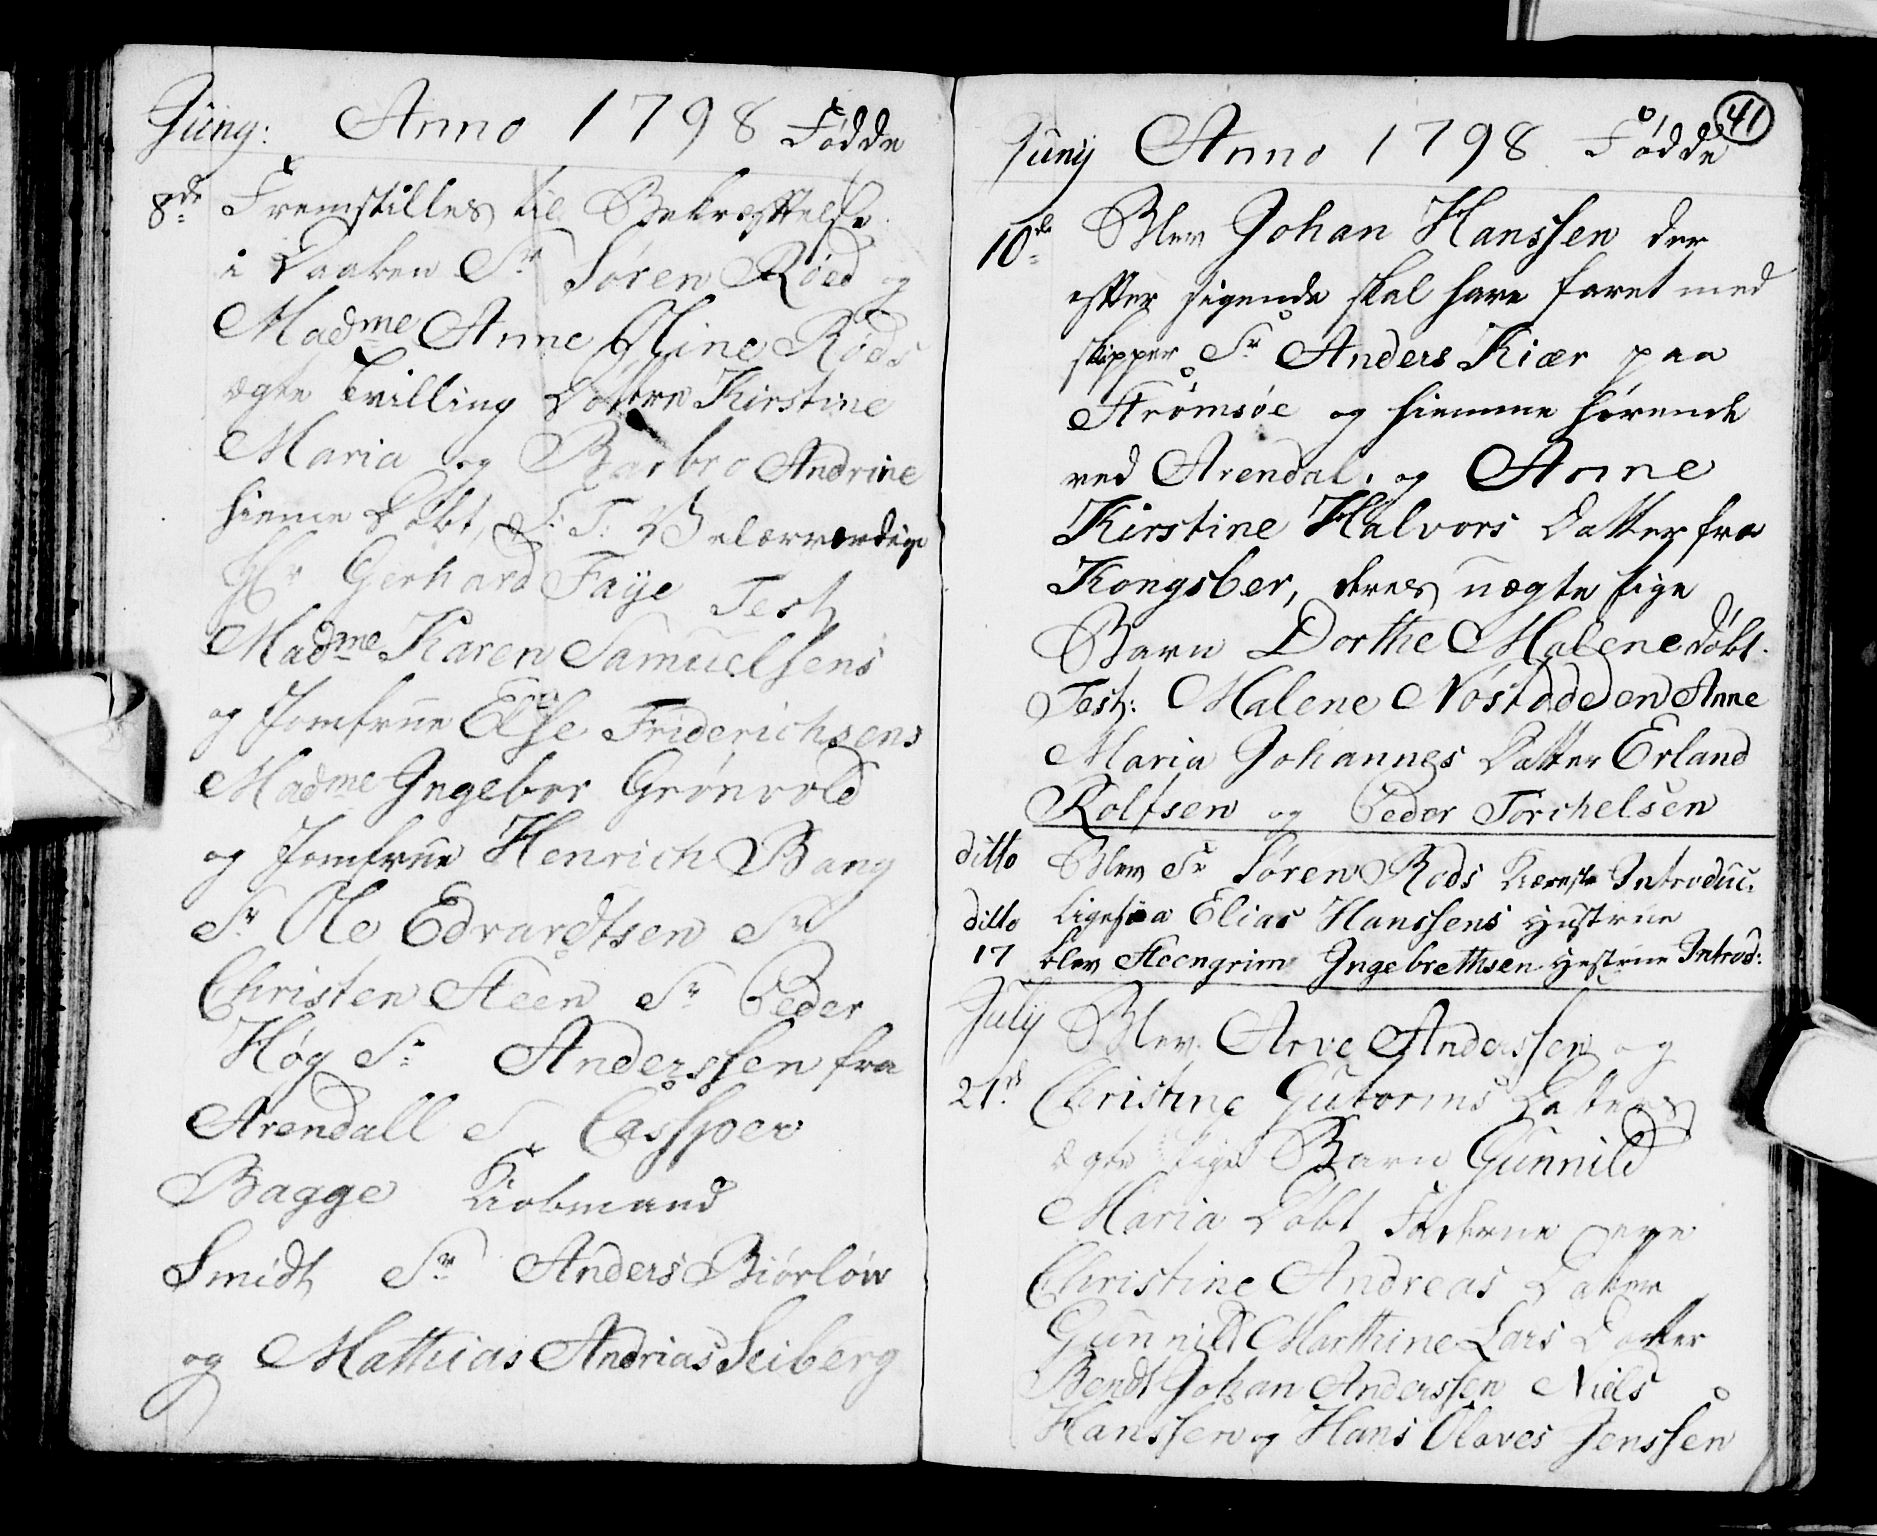 Juny: Anno 1798 Fødde
8de Fremstilles til Bekræfttelse
i Daaben Sr Søren Røed og
Madme Anne Oline Røds
ægte Tvilling Døttre Kirstine
Maria og Barbro Andrine
hieme døbt, S: T: Velærværdige
Hr Gerhard Faye Test
Madme Karen Samuelsens
og Jomfrue Else Friderichsens
Madme Ingebor Grønvold
og Jomfrue Henrich Bang
Sr Ole Edvardtsen Sr
Christen Steen Sr Peder
Høg Sr Anderssen fra
Arendall S Cassper
Bagge Kiøbmand
Smidt Sr Anders Biørløw
og Mathias Andrias Seiberg
41
Junij Anno 1798 Fødde
10de Blev Johan Hanssen der
efter sigende skal have faret med
skipper Sr Anders Kiær paa
Strømsøe og hiemme hørende
ved Arendal, og Anne
Kirstine Halvors Datter fra
Kongsber, deres uægte pige
Barn Dorthe Malene døbt.
Test: Malene Nøstdodden Anne
Maria Johannes Datter Erland
Rolfsen og Peder Torchelsen
ditto Blev Sr Søren Røds Kiereste Introduc.
ditto Ligesaa Elias Hanssens Hustrue
17 blev Steengrim Ingebrethsen Hustrue Introd:
July Blev Arve Anderssen og
21de Christine Gutorms Datters
ægte pige Barn Gunnild
Maria døbt Fadderne vare
Christine Andreas Datter
Gunnild Marthine Lars Datter
Bendt Johan Anderssen Niels
Hanssen og Hans Olaves Jenssen